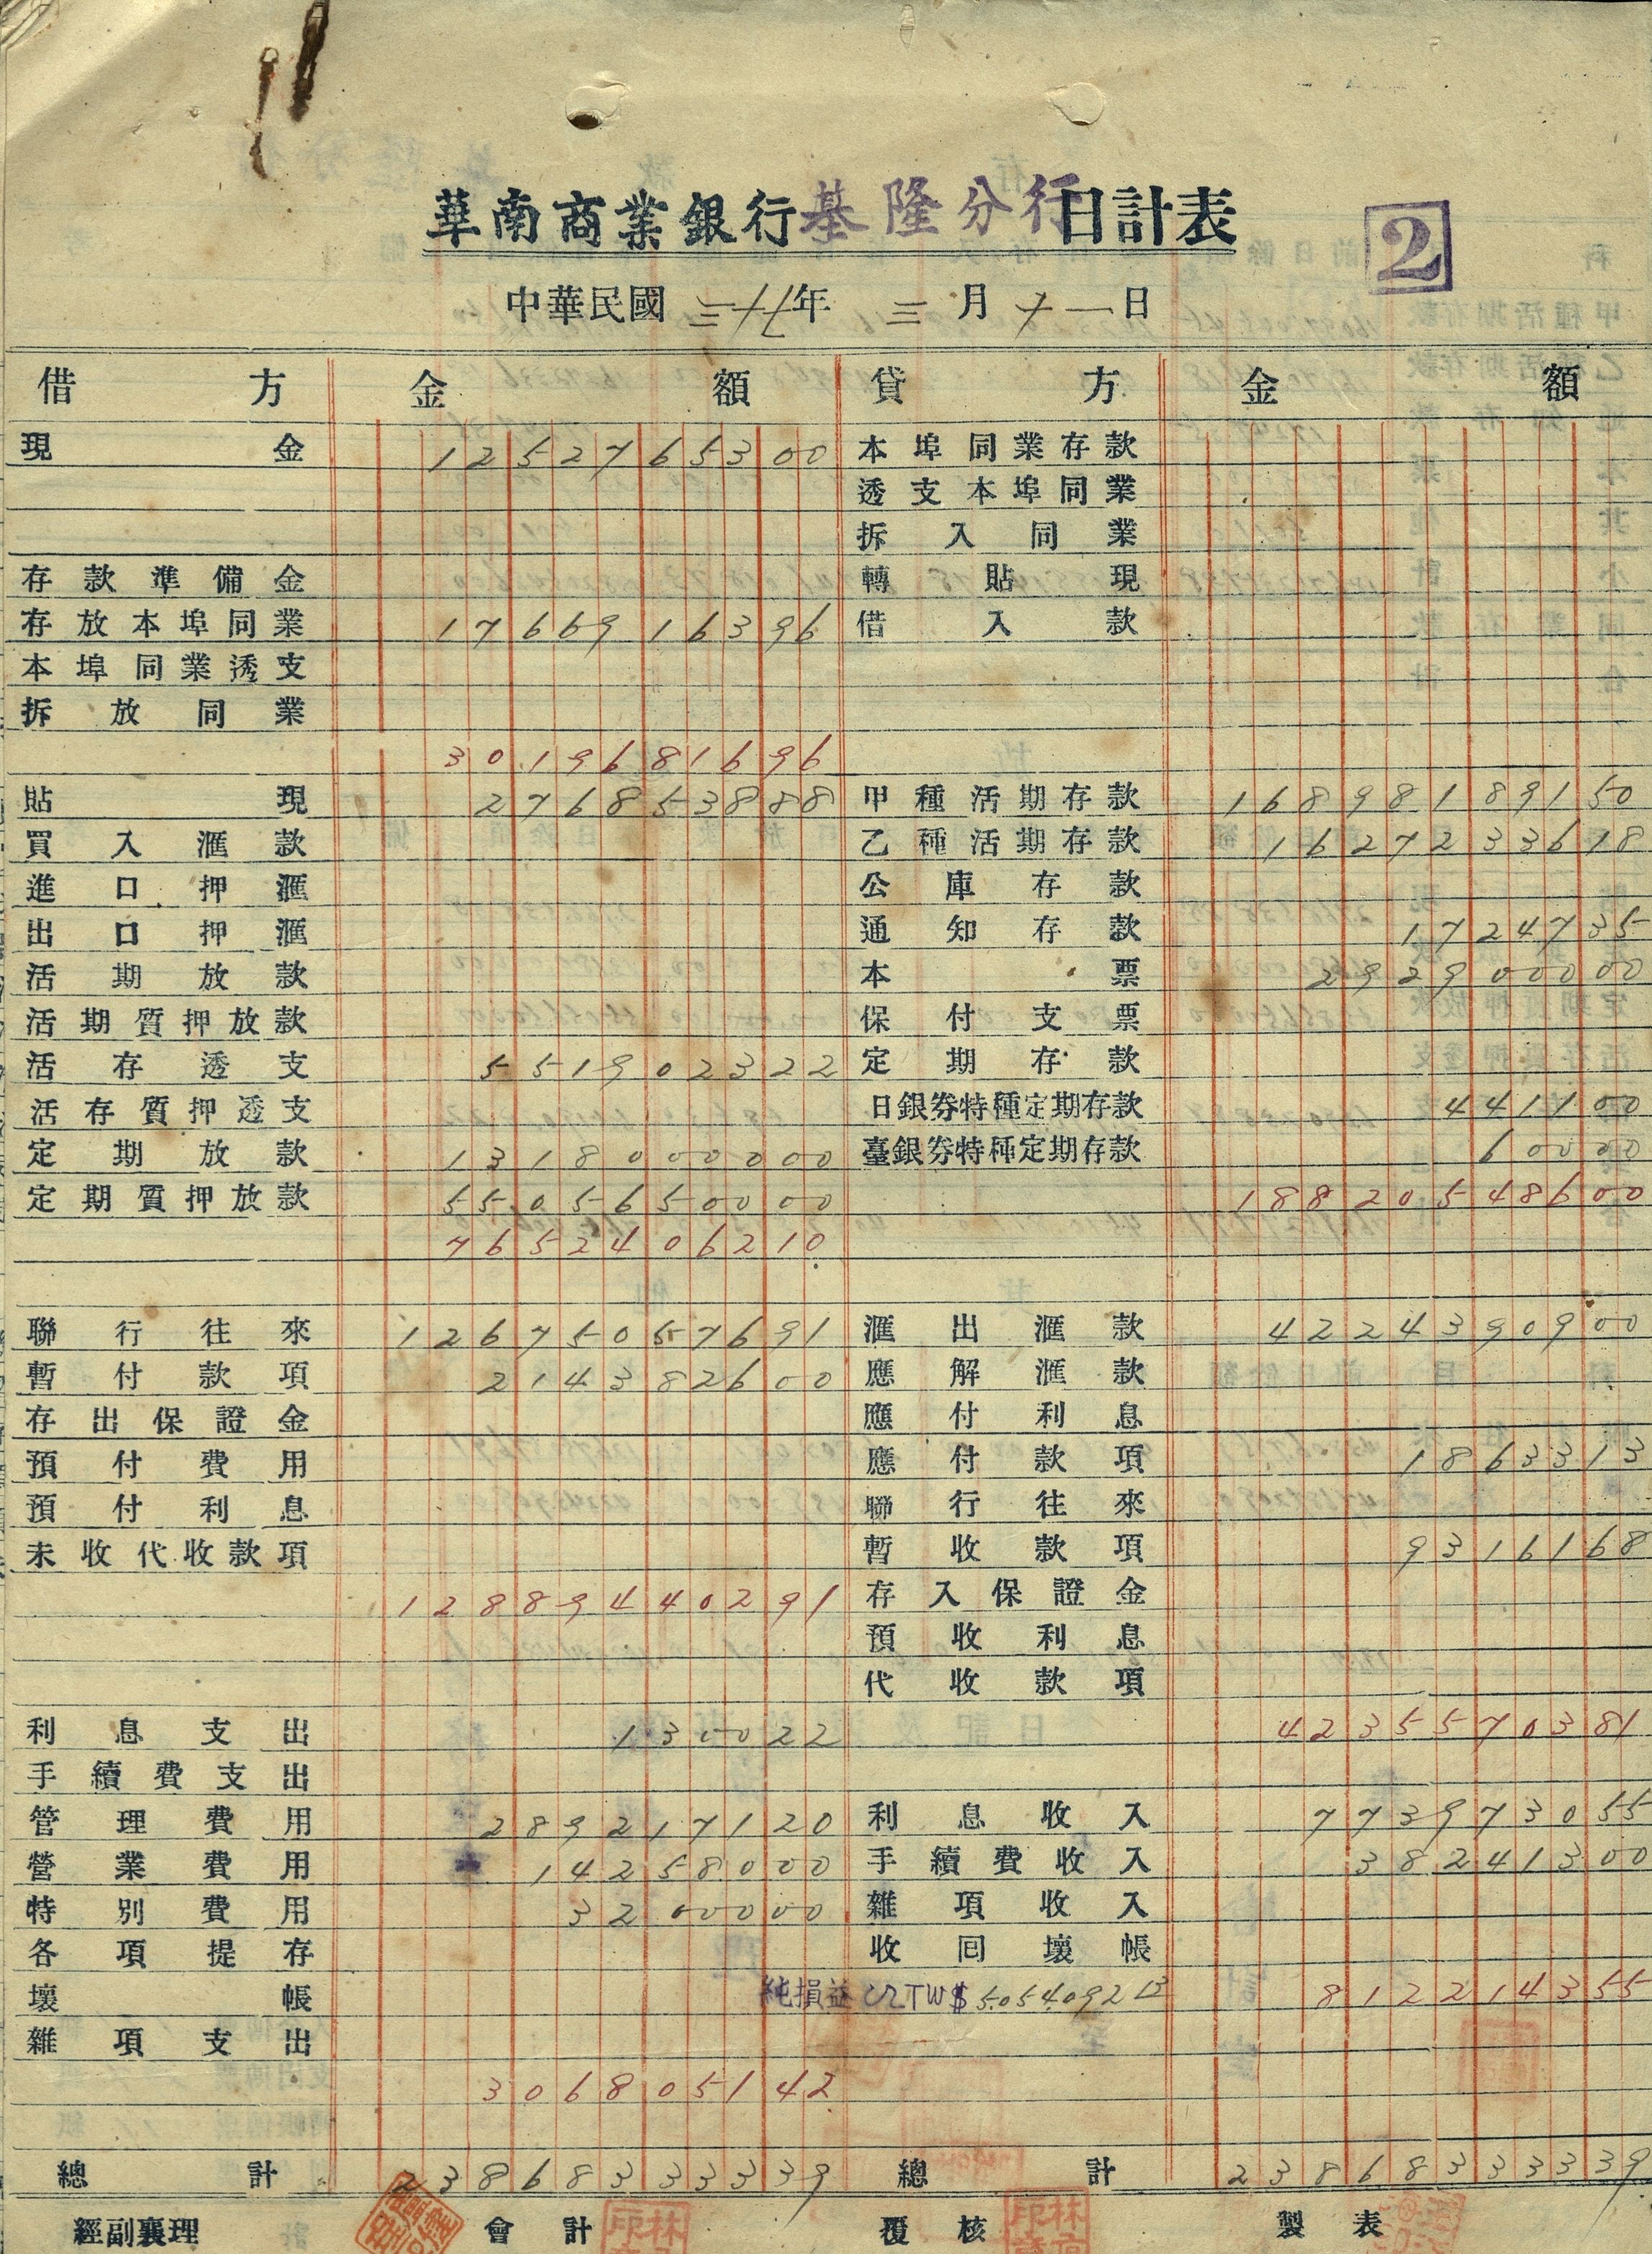 華南商業銀行基隆分行日計表
2
中華民國 三十七年 三月十一日
借方 金額 貸方 金額
現金 1252765300 本埠同業存款
透支本埠同業
拆入同業
存款準備金 轉貼現
存放本埠同業 1766916396 借入款
本埠同業透支
拆放同業
3019681696
貼現 276853888 甲種活期存款 16898189150
買入滙款 乙種活期存款 1627233618
進口押滙 公庫存款
出口押滙 通知存款 1724735
活期放款 本票 292900000
活期質押放款 保付支票
活存透支 551902322 定期存款
活存質押透支 日銀券特種定期存款 441100
定期放款 1318000000 臺銀券特種定期存款 60000
定期質押放款 5505650000 18820548603
7652406210
聯行往來 12675057691 滙出滙款 4224390900
暫付款項 214382600 應解滙款
存出保證金 應付利息
預付費用 應付款項 1863313
預付利息 聯行往來
未收代收款項 暫收款項 9316168
12889440291 存入保證金
預收利息
代收款項
利息支出 130022 4235570381
手續費支出
管理費用 289217120 利息收入 773973055
營業費用 14258000 手續費收入 38241300
特別費用 3200000 雜項收入
各項提存 收回壞帳
壞帳 純損益 TW$ 5.054.092 13 812214355
雜項支出
306805142
總計 23868333339 總計 23868333339
經副襄理 會計 覆核 製表